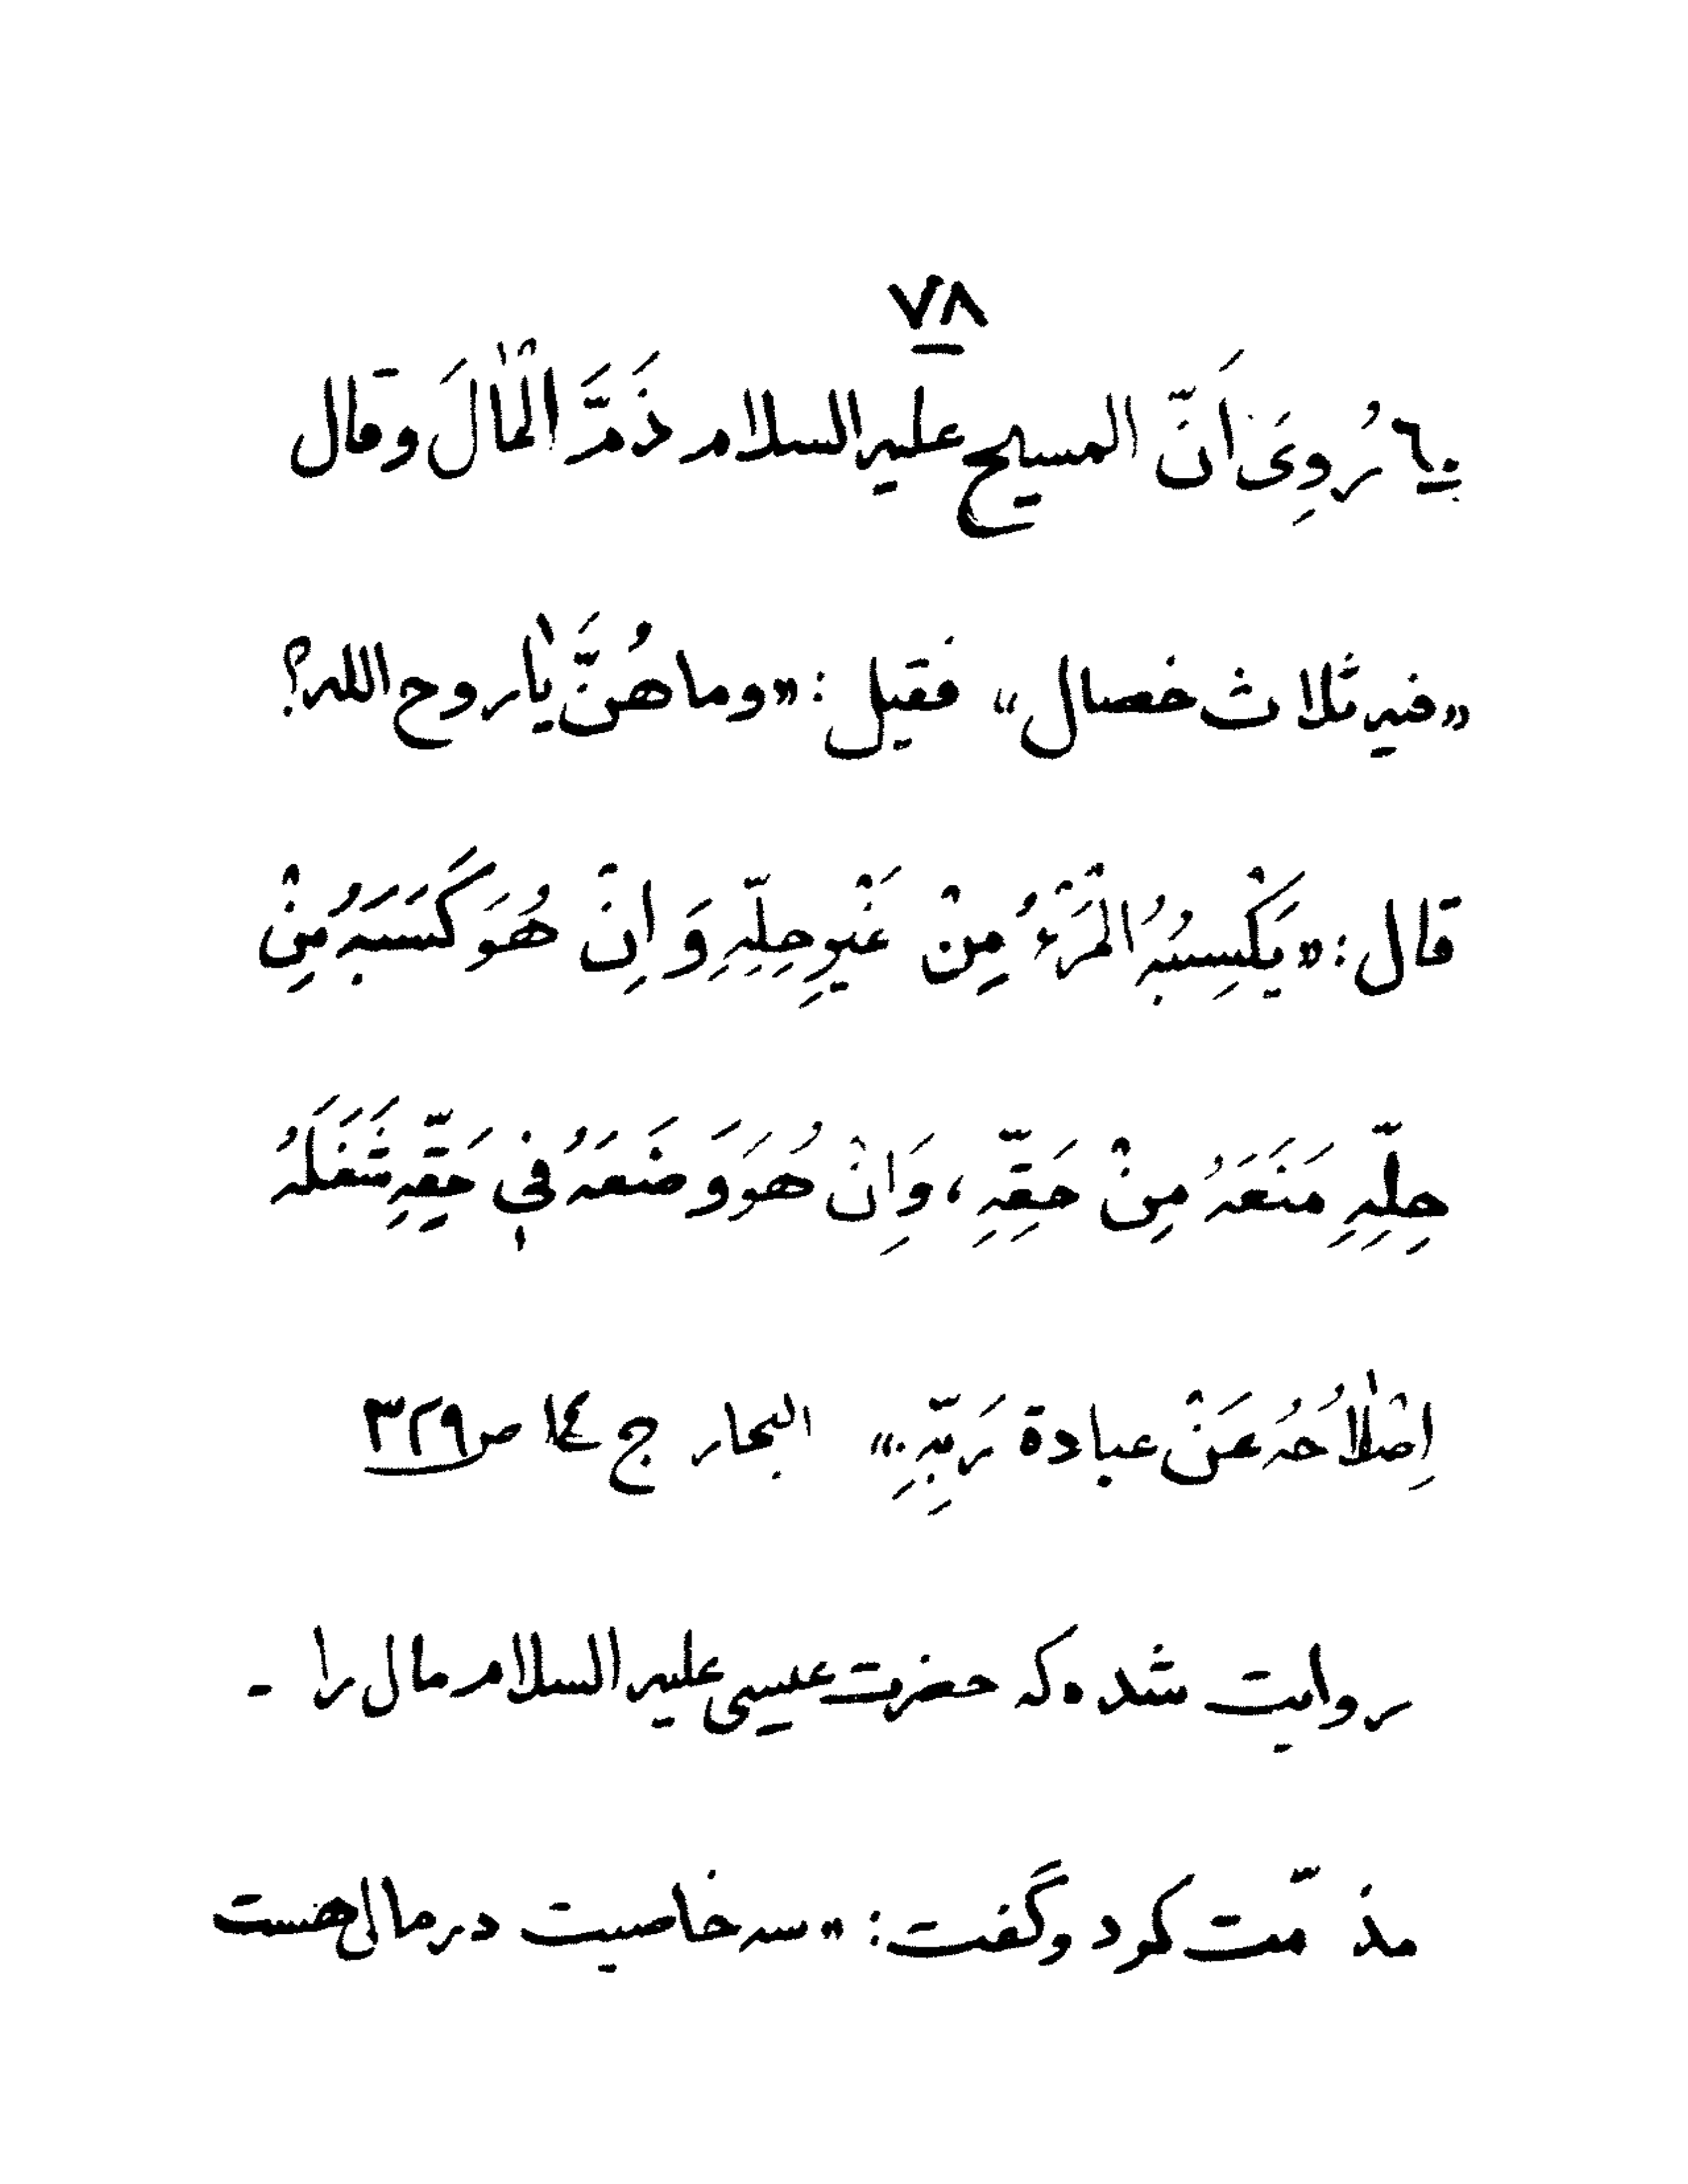 ٧٨
٦٠ رُوِیَ اَنَّ المسیح علیه السلام ذَمَّ الْمٰالَ وقال
«فیه ثلاث خصال» فقیل: «وما هُنَّ یٰا روح الله؟
قال: «یَكْسِبُهُ الْمَرْءُ مِنْ غَیْرِ حِلِّهِ وَ اِنْ هُوَ كَسَبَهُ مِنْ
حِلِّهِ مَنَعَهُ مِنْ حَقِّهِ، وَاِنْ هُوَ وَضَعَهُ فی حَقِّهِ شَغَلَهُ
اِصْلٰاحُهُ عَنْ عبادة رَبِّهِ.» البحار ج ١٤ ص ٣٢٩
روایت شده که حضرت عیسی علیه السلام مال را -
مذمّت کرد و گفت: «سه خاصیت در مال هست